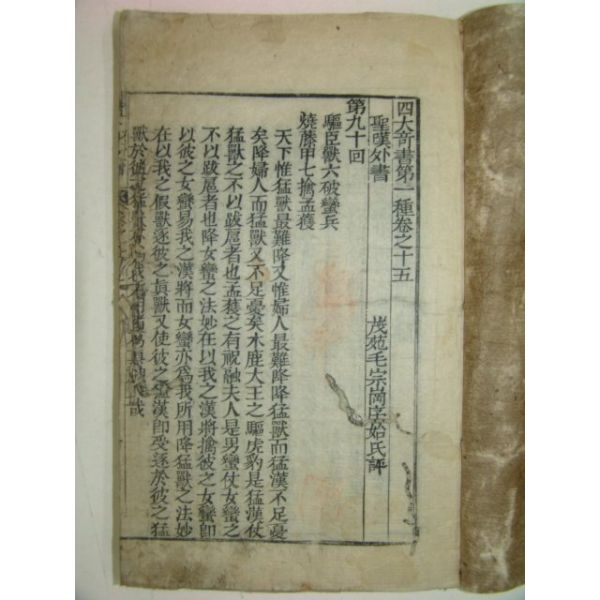 四大奇書第一種卷之十五
聖嘆外書
茂苑毛宗崗序始氏評
第九十回
驅巨獸六破蠻兵
燒藤甲七擒孟獲
天下惟猛獸最難降又惟婦人最難降降猛獸而猛漢不足憂
矣降婦人而猛獸又不足憂矣木鹿大王之驅虎豹是猛漢仗
猛獸之不以跋扈者也孟獲之有祝融夫人是男蠻仗女蠻之
不以跋扈者也降女蠻之法妙在以我之漢將擒彼之女蠻卽
以彼之女蠻易我之漢將而女蠻亦爲我所用降猛獸之法妙
在以我之假獸逐彼之眞獸又使彼之蠻漢卽受逐於彼之猛
獸於彼之猛獸